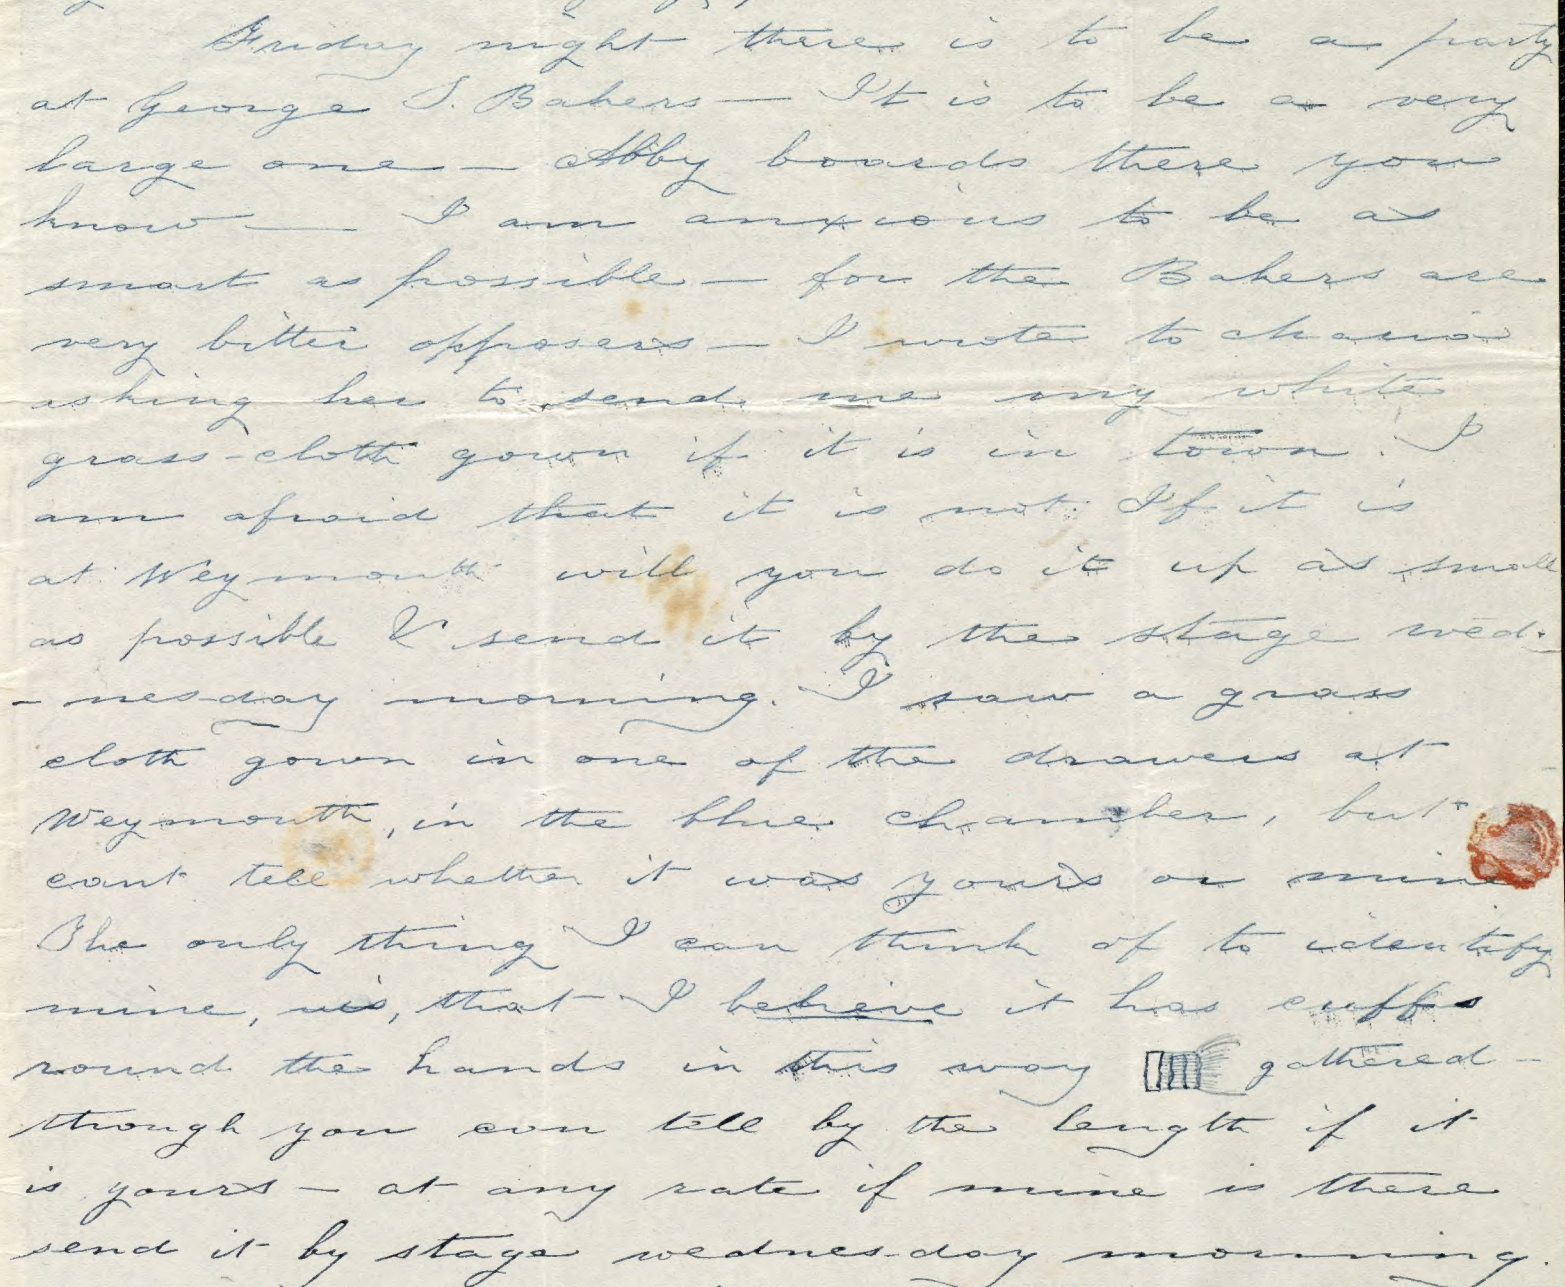 Friday night there is to be a party
at George S. Bakers — It is to be a very
large one — Abby boards there you
know — I am anxious to be as
smart as possible — for the Bakers are
very bitter opposers — I wrote to
asking her to send me my white
grass-cloth gown if it is in town. I
am afraid that it is not. If it is
at Weymouth will you do it up as small
as possible & send it by the stage wed-
-nesday morning. I saw a grass
cloth gown in one of the drawers at
Weymouth, in the blue chamber, but
cant tell whether it was yours or mine
The only thing I can think of to identify
mine, is, that I believe it has cuffs
round the hands in this way gathered —
though you can tell by the length if it
is yours — at any rate if mine is there
send it by stage wednesday morning.